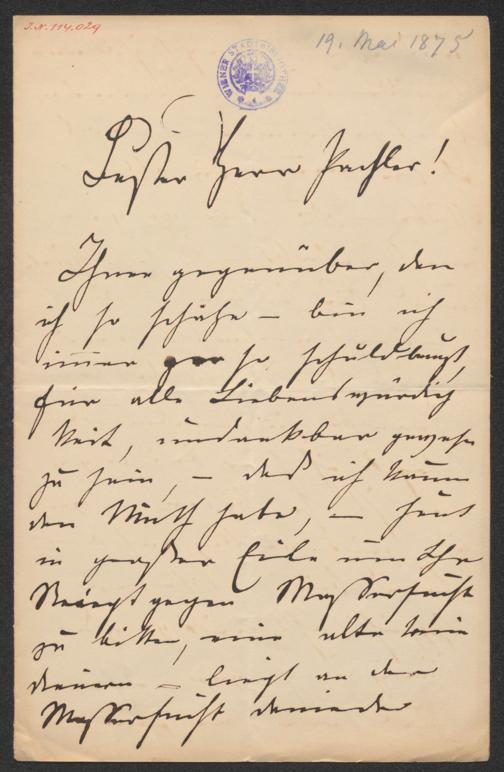 J.N. 114.029
19. Mai 1875
WIENER STADTBIBLIOTHEK
Bester Herr Pachler!
Ihnen gegenüber, den
ich so schätze – bin ich
immer so schuldbewußt,
für alle Liebenswürdig
keit, undankbar gewesen
zu sein, – daß ich kaum
den Muth habe, – heut
in großer Eile um Ihr
gegen Wassersucht
zu bitten, eine alte
– liegt an der
Wassersucht danieder